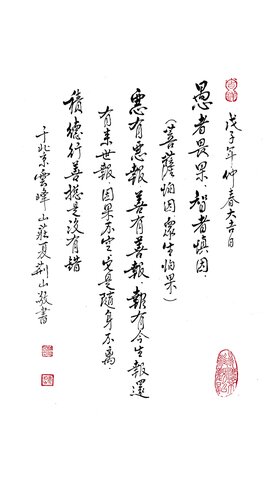 戊子年仲春大吉日
愚者畏果．智者慎因．
（菩薩怕因眾生怕果）
惡有惡報善有善報．報有今生報還
有来世報因果不空它是隨身不离．
積德行善總是沒有錯
于北京雲峰山莊夏荊山敬書